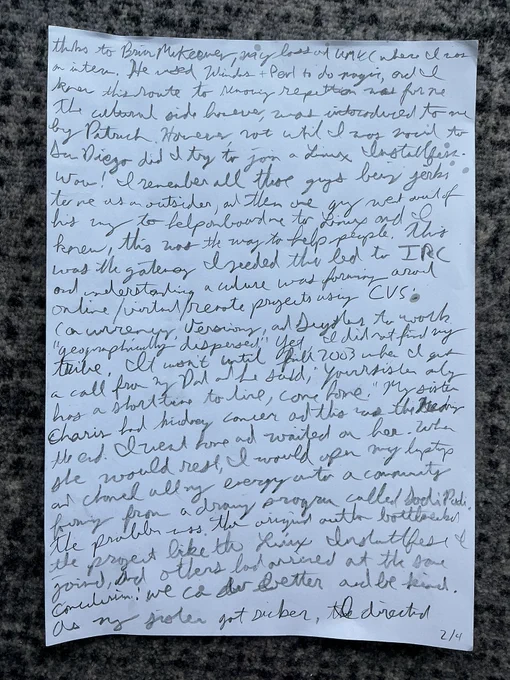 thanks to Brian McKeever, my boss at UMKC where I was
an intern. He used Windows + Perl to do magic, and I
knew this route to removing repetition was for me
The cultural side however, was introduced to me
by Patrick. However not until I moved to
San Diego did I try to join a Linux Installfest.
Wow! I remember all those guys being jerks
to me as an outsider, and then one guy went out of
his way to help onboard me to Linux and I
knew, this was the way to help people. This
was the gateway I needed that led to IRC
and understanding a culture was forming around
online/virtual/remote projects using CVS.
Concurrency, Versioning, and to work
"geographically dispersed." Yet, I did not find my
tribe. It won't until fall 2003 when I got
a call from my Dad and he said, "Your sister only
has a short time to live, come home." My sister
Charis had kidney cancer and this was the
the end. I went home and waited on her. When
she would rest, I would open my laptop
and channel all my energy into a community
forming from a drawing program called Sodipodi.
The problem was the original author bottlenecked
the project like the Linux Installfest I
joined, and others had arrived at the same
conclusion: we can do better and be kind.
As my sister got sicker, the directed
2/4